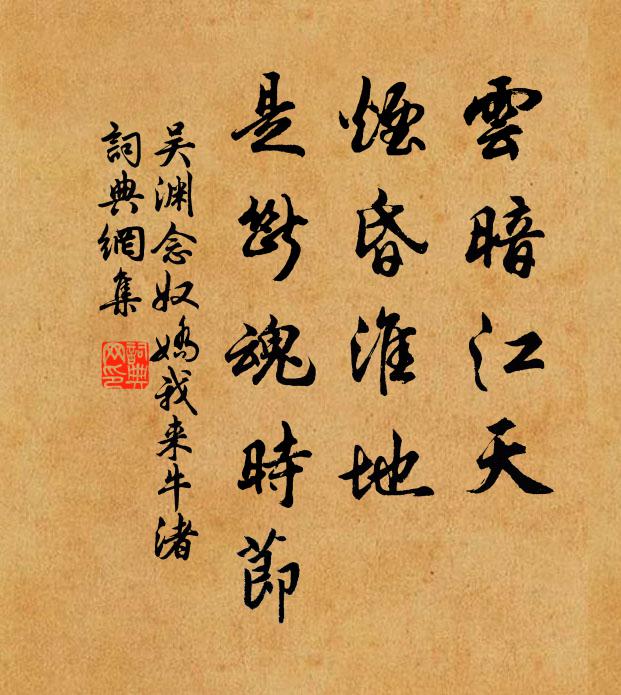 雲暗江天
煙昏淮地
是斷魂時節
吴渊念奴嬌我来牛渚
詞典網集
詞典網印